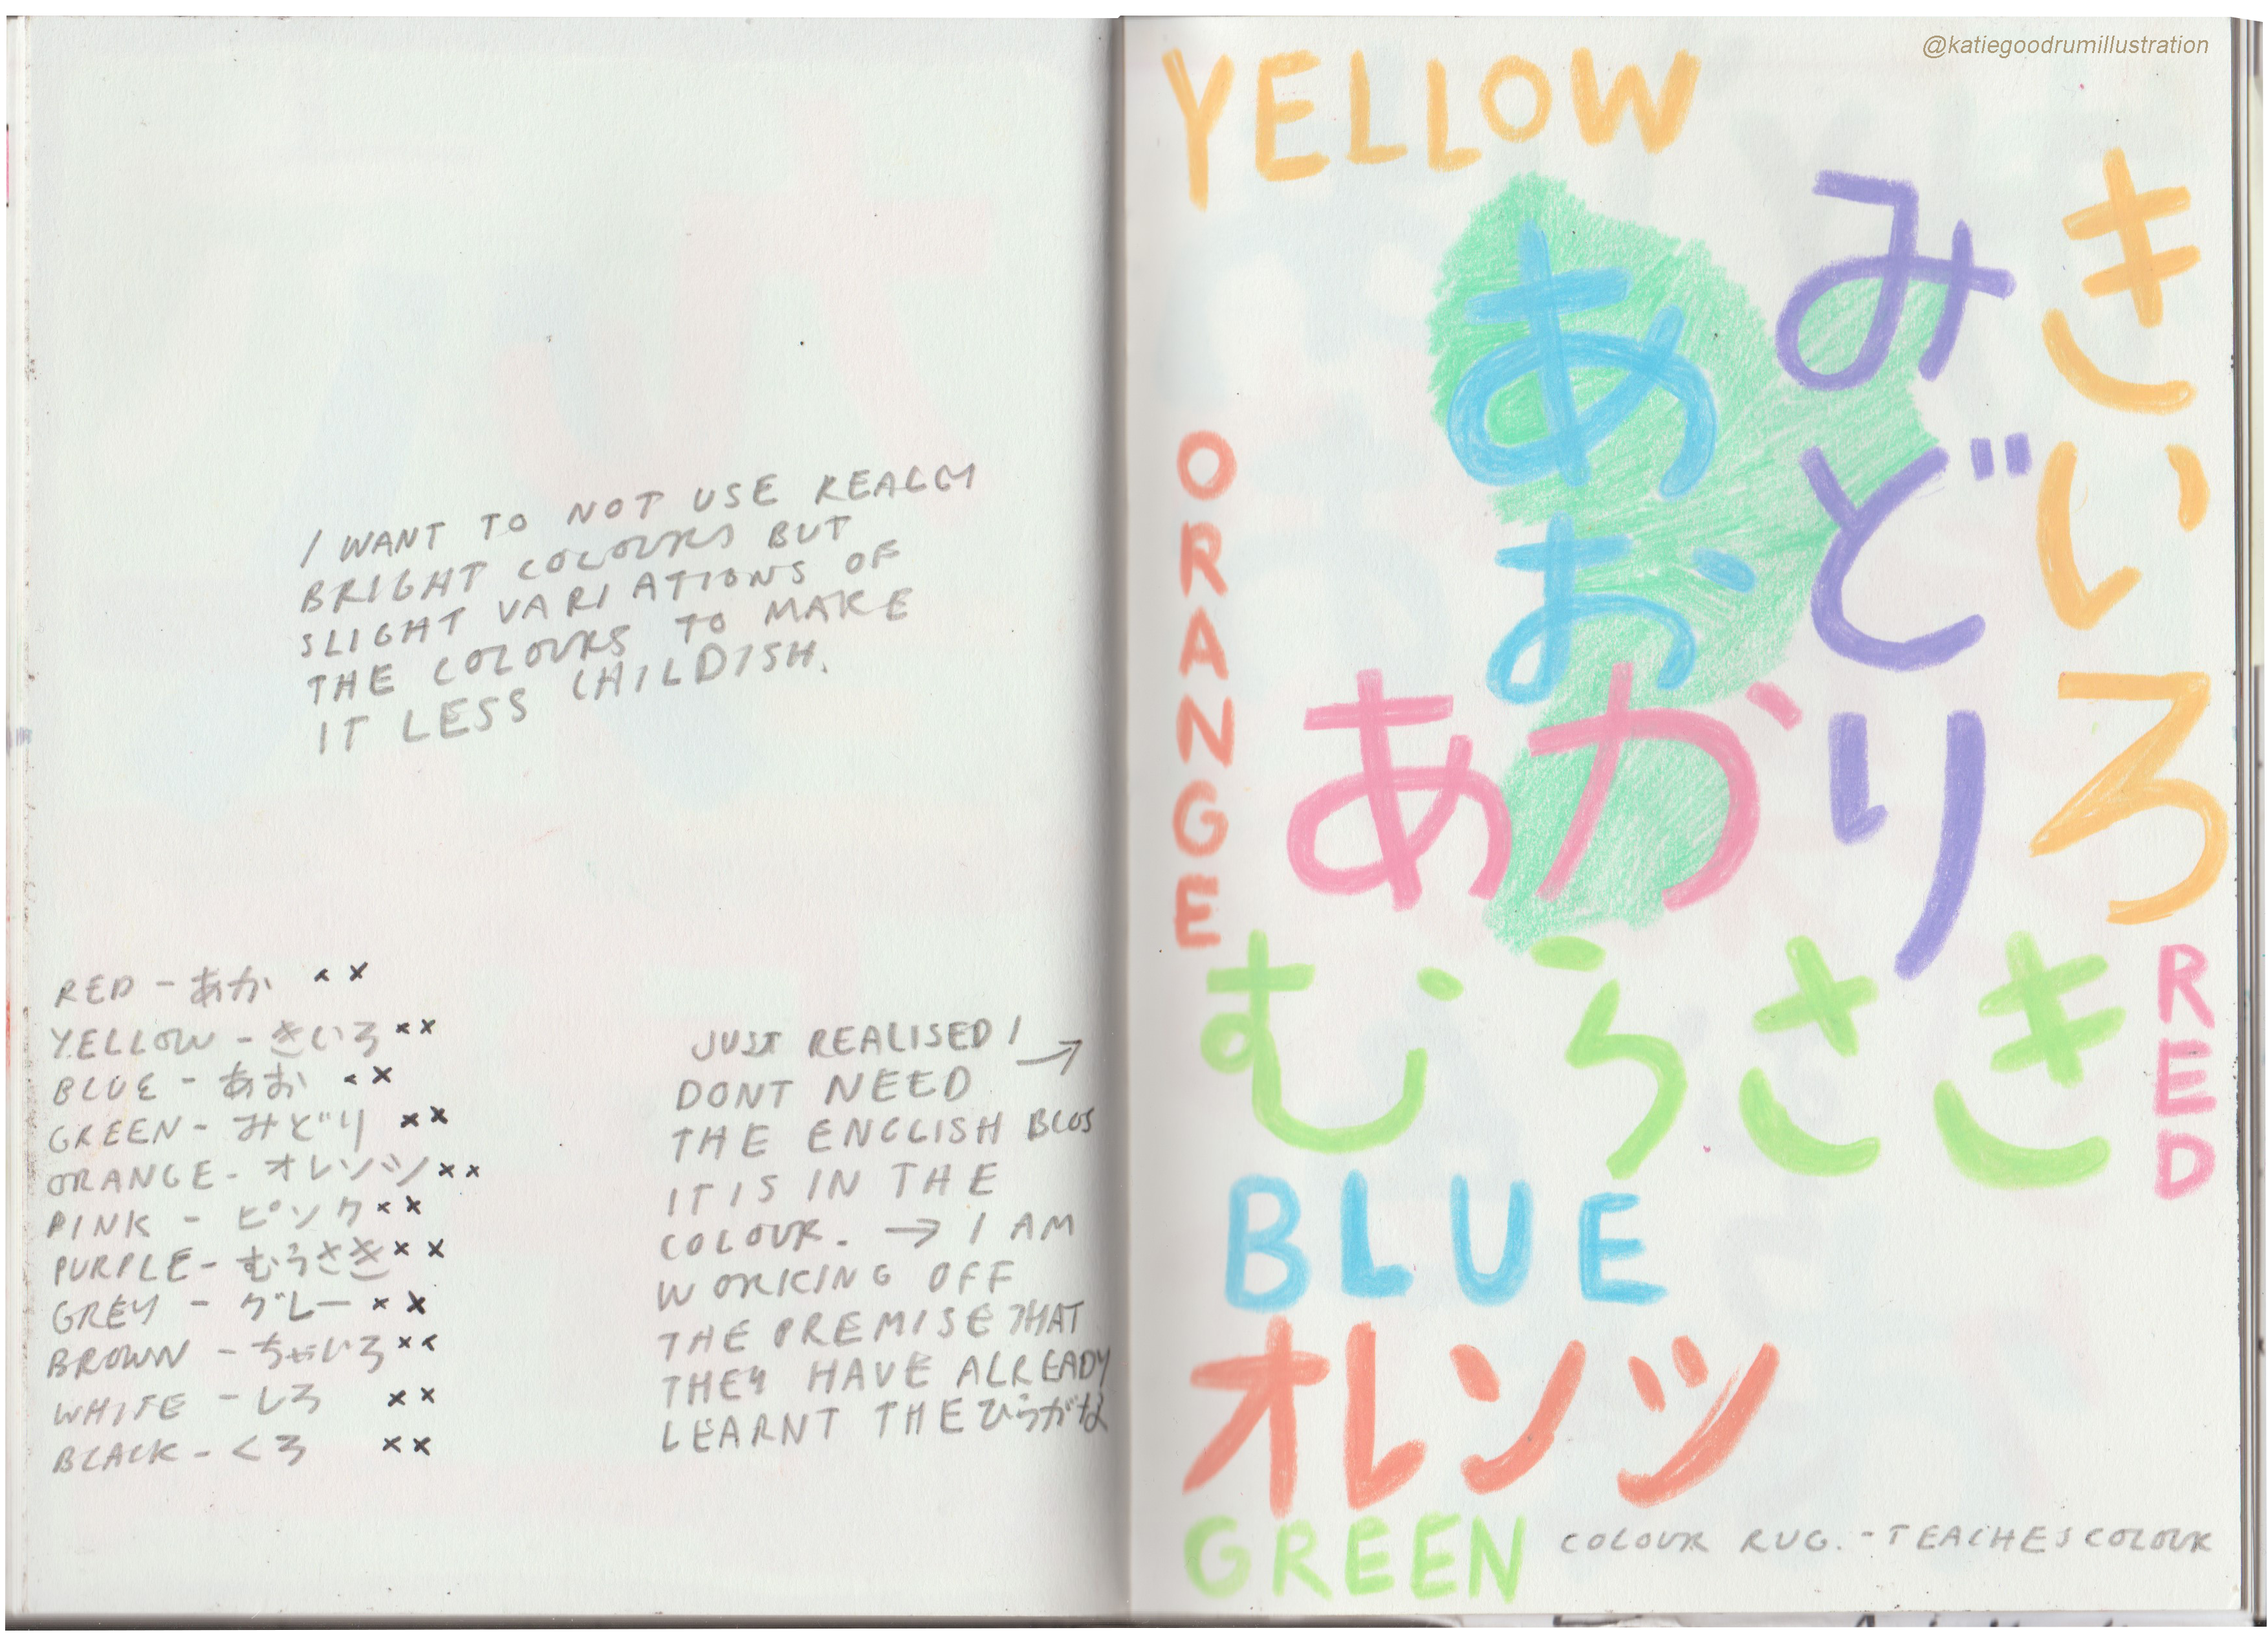 I WANT TO NOT USE REALLY
BRIGHT COLOURS BUT
SLIGHT VARIATIONS OF
THE COLOURS TO MAKE
IT LESS CHILDISH.
RED - あか x x
YELLOW - きいろ x x
BLUE - あお x x
GREEN - みどり x x
ORANGE - オレンツ x x
PINK - ピンク x x
PURPLE - むらさき x x
GREY - グレー x x
BROWN - ちゃいろ x x
WHITE - しろ x x
BLACK - くろ x x
JUST REALISED I →
DONT NEED
THE ENGLISH BCOS
IT IS IN THE
COLOUR. → I AM
WORKING OFF
THE PREMISE THAT
THEY HAVE ALREADY
LEARNT THE ひらがな
@katiegoodrumillustration
YELLOW
きいろ
みどり
あお
ORANGE
あか
むらさき
RED
BLUE
オレンツ
GREEN
COLOUR RUG. - TEACHES COLOUR